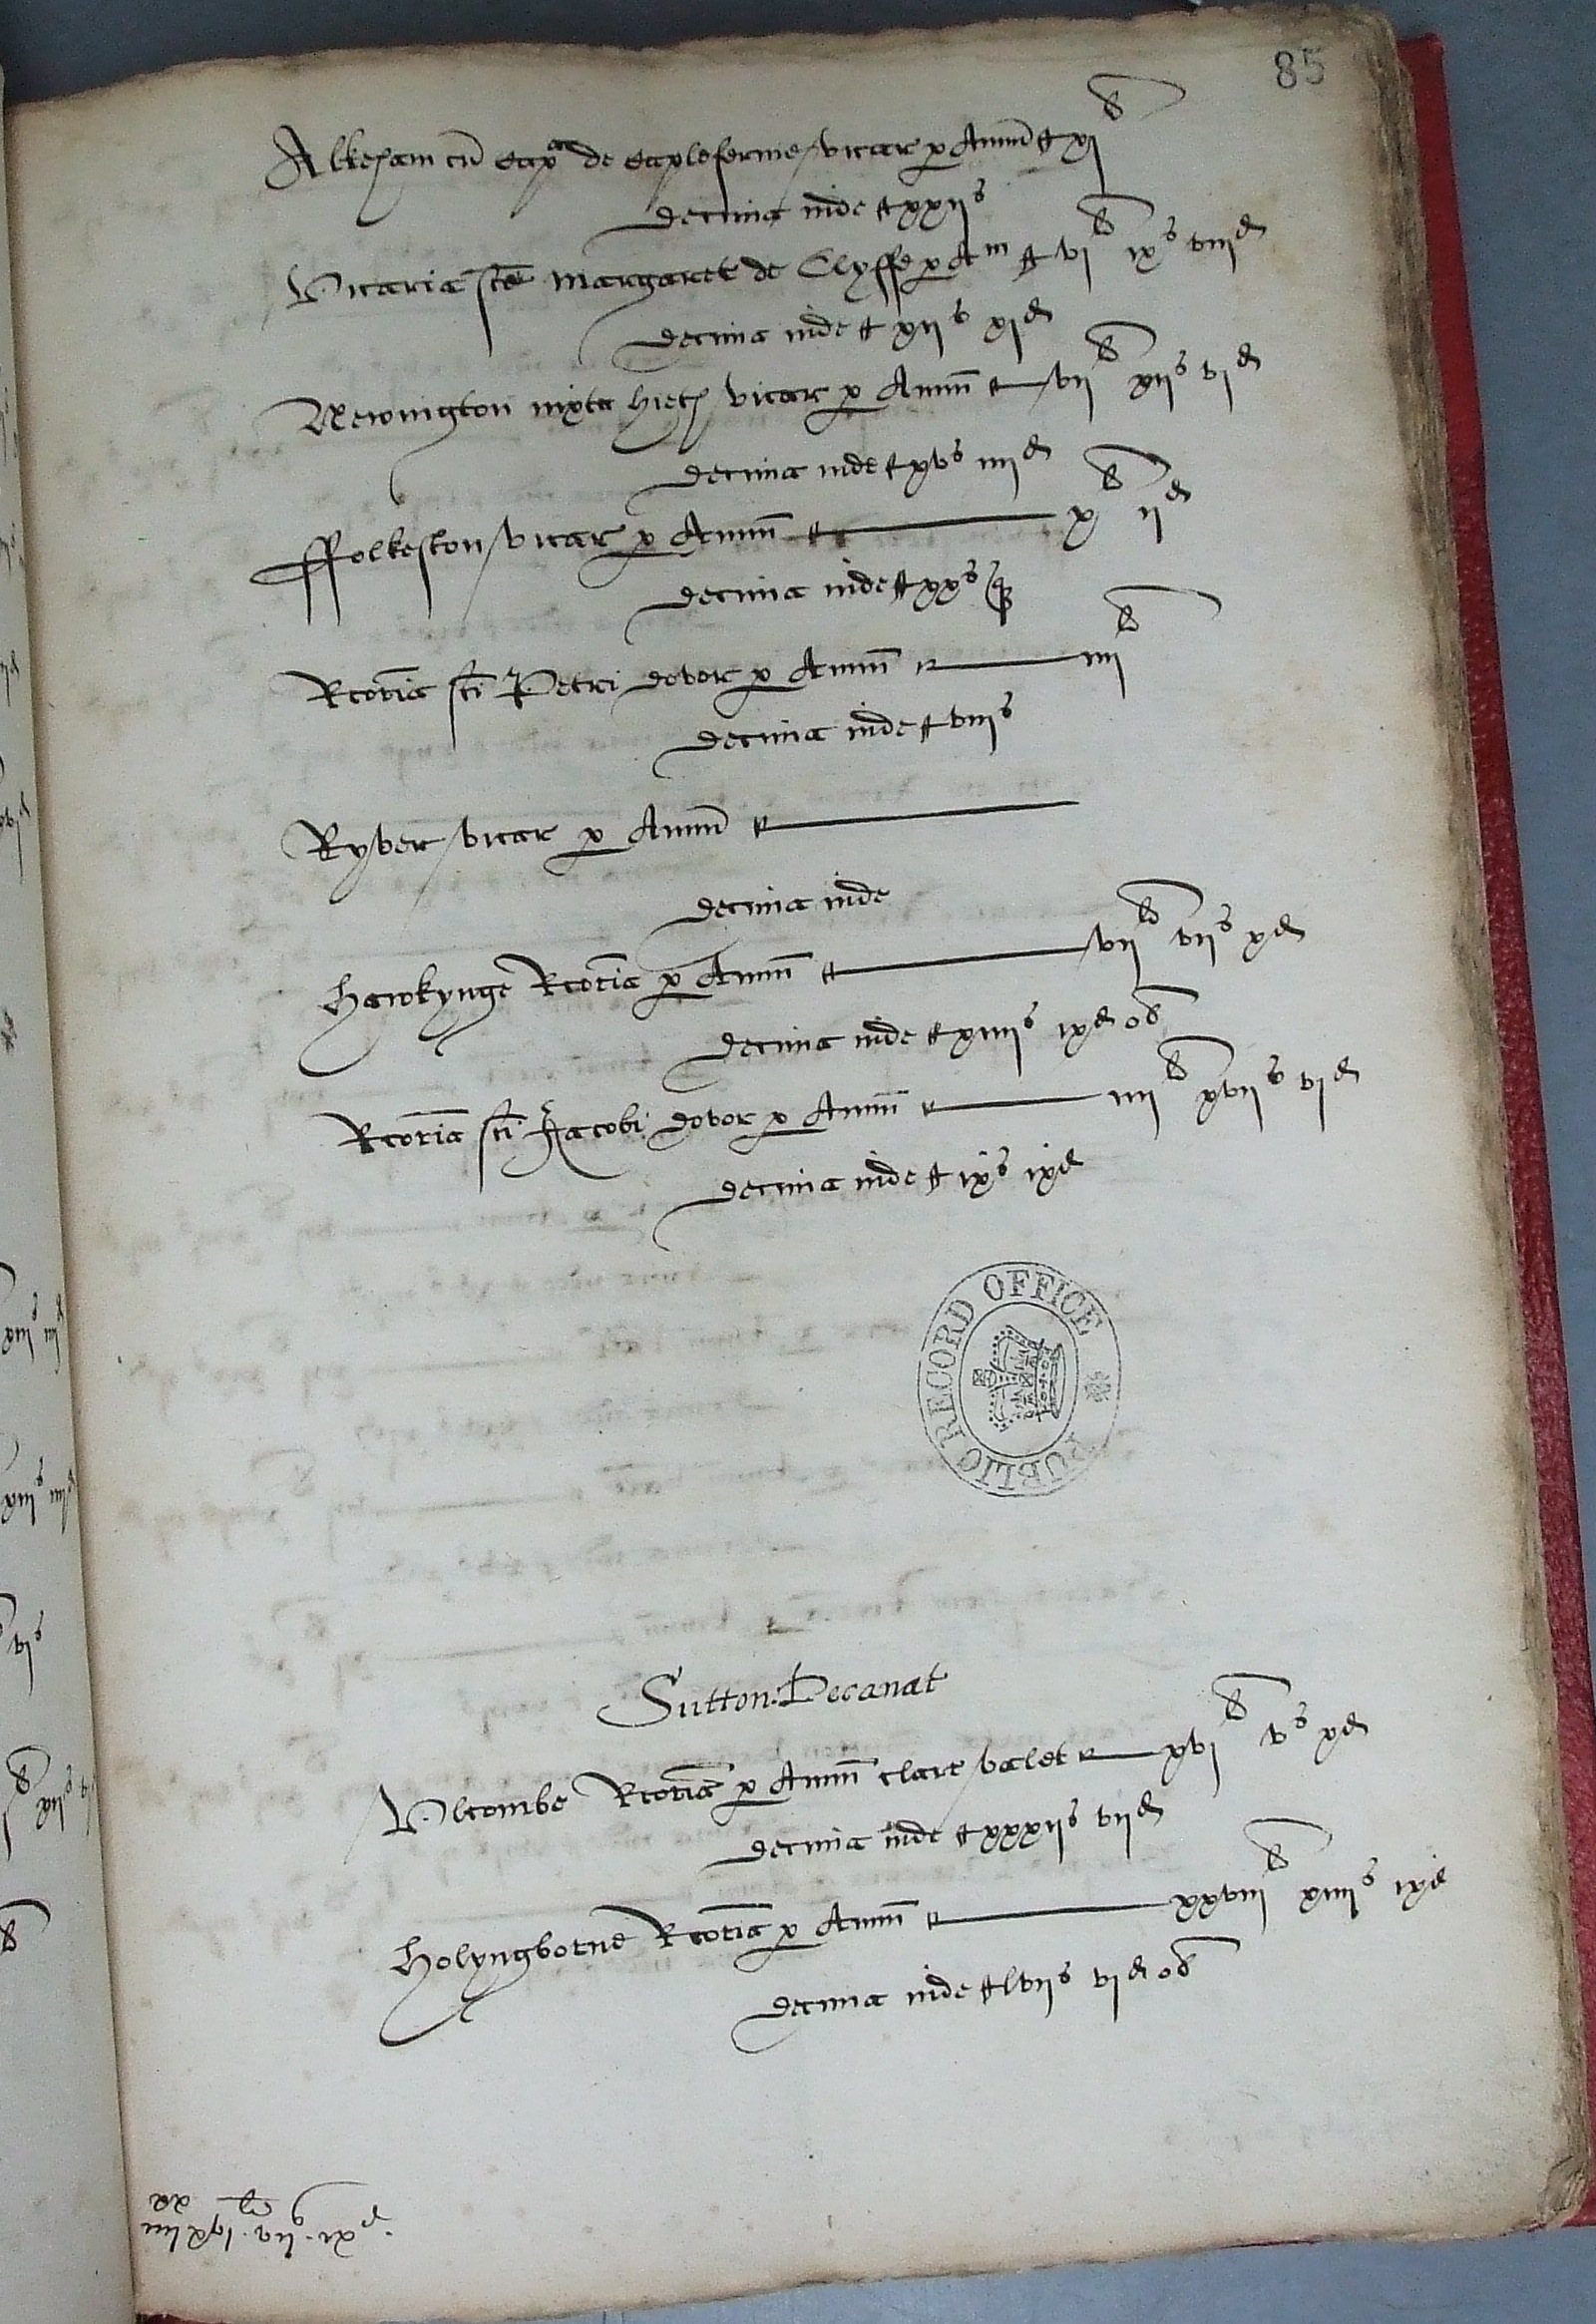 85
Alkham cū capᵃ de capleferne vicar p Annū xj ł
Decima inde xxij s
Vicaria scē Margaret de Clyffe p Aᵐ vj ł ix s viij d
Decima inde xij s xj d
Newington iuxta hieth vicar p Annū vij ł xij s vj d
Decima inde xv s iij d
ffolkeston vicar p Annū x ł ij d
Decima inde xx s q̄
Rcoria sci Petri dovor p Annū iiij ł
Decima inde viij s
Ryver vicar p Annū
Decima inde
Hawkynge Rcoria p Annū vij ł vij s x d
Decima inde xiiij s ix d ob
Rcoria sci Jacobi dovor p Annū iiij ł xvij s vj d
Decima inde ix s ix d
PUBLIC RECORD OFFICE
Sutton: Decanat
Vlcombe Rcoria p Annū clare valet xvj ł v s x d
Decima inde xxxij s vij d
Holyngborne Rcoria p Annū xxviij ł xiiij s ix d
Decima inde lvij s vj d ob